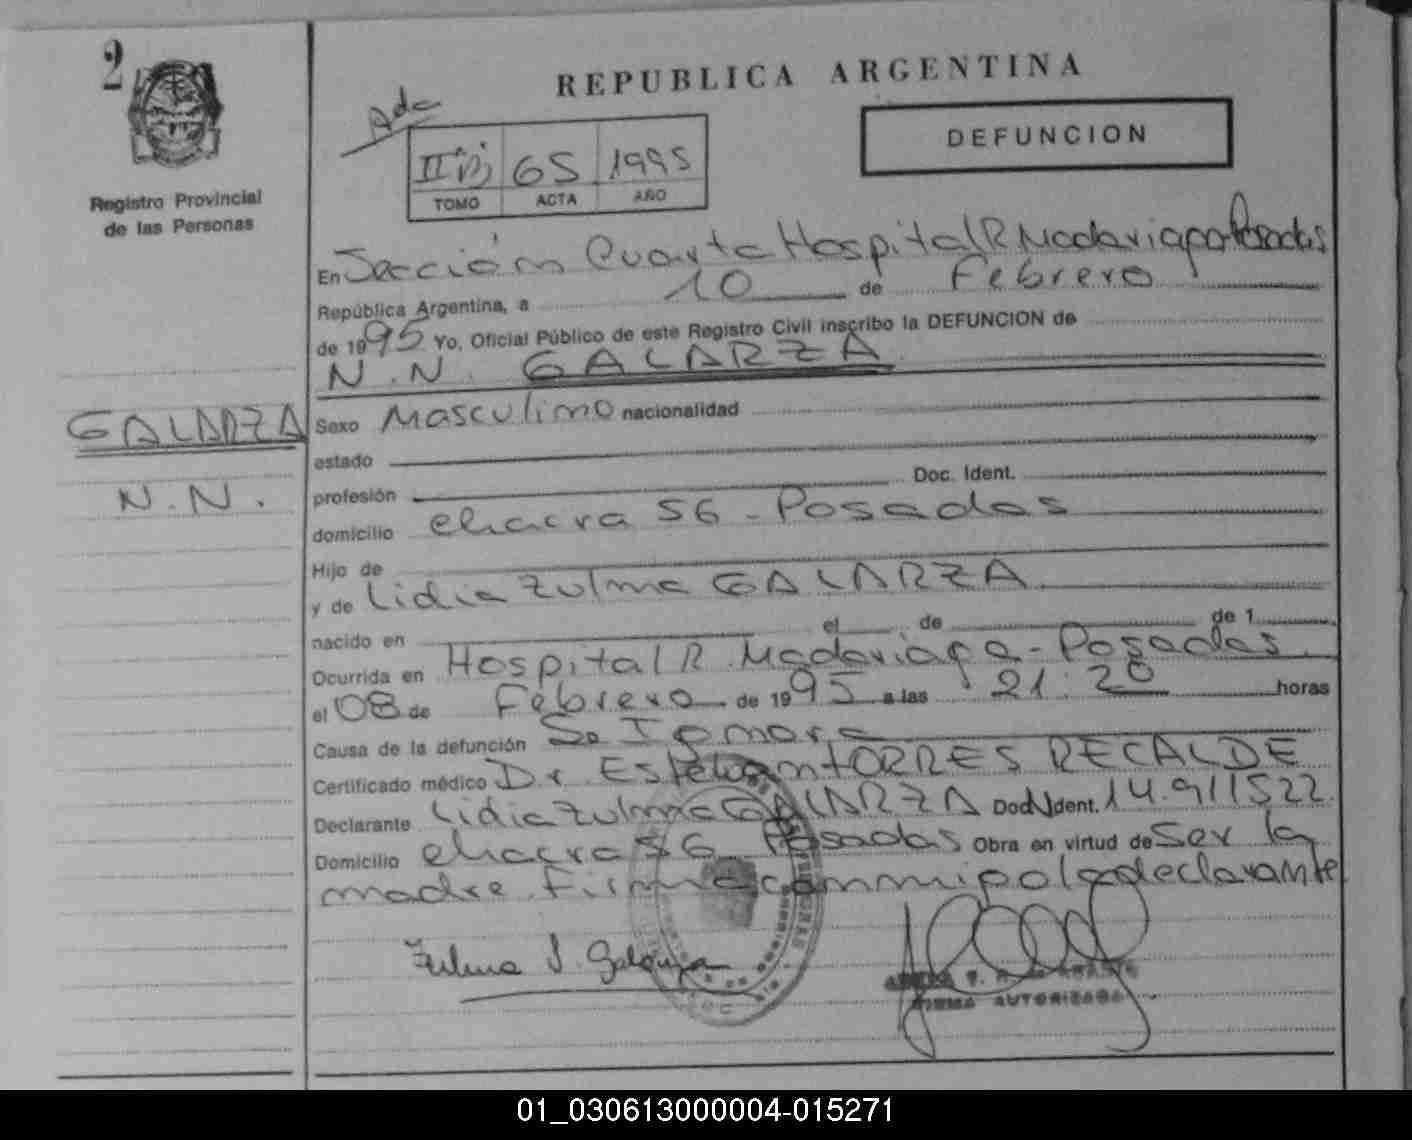 2
REPUBLICA ARGENTINA
DEFUNCION
Registro Provincial
de las Personas
65 1995
TOMO ACTA AÑO
En Sección Cuarta Hospital R Madariaga Posadas
República Argentina, a 10 de Febrero
de 1995 Yo, Oficial Público de este Registro Civil inscribo la DEFUNCION de
N.N. GALARZA
GALARZA
N.N.
Sexo Masculino nacionalidad
estado
profesión Doc. Ident.
domicilio chacra 56 - Posadas
Hijo de
y de Lidia Zulma GALARZA
nacido en el de de 1
Ocurrida en Hospital R. Madariaga - Posadas.
el 08 de Febrero de 1995 a las 21:20 horas
Causa de la defunción Se Ignora
Certificado médico Dr Esteban TORRES RECALDE
Declarante Lidia Zulma GALARZA Doc. Ident. 14.911522.
Domicilio chacra 56 Posadas Obra en virtud de Ser la
madre. Firma conmigo la declarante
Zulma L. Galarza
FIRMA AUTORIZADA
01_030613000004-015271